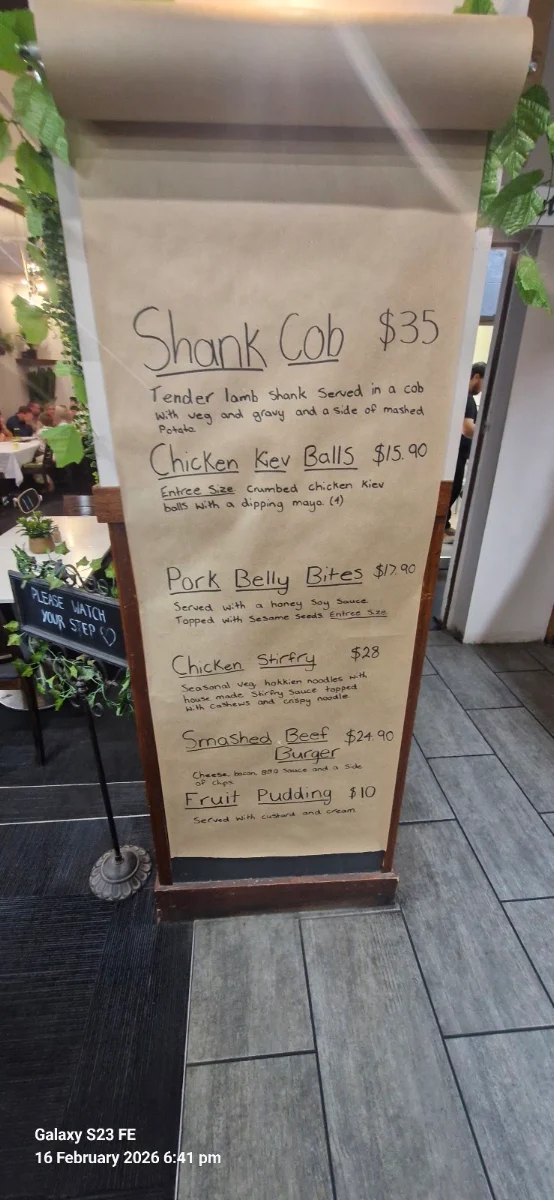 Shank Cob $35
Tender lamb shank Served in a cob
with veg and gravy and a side of mashed
Potato
Chicken Kiev Balls $15.90
Entree Size Crumbed chicken Kiev
balls with a dipping mayo (4)
Pork Belly Bites $17.90
Served with a honey Soy Sauce
Topped with Sesame Seeds Entree Size
Chicken Stirfry $28
Seasonal veg, hokkien noodles with
house made Stirfry Sauce topped
with Cashews and crispy noodle
Smashed Beef $24.90
Burger
Cheese, bacon, BBQ Sauce and a Side
of chips
Fruit Pudding $10
Served with custard and cream
PLEASE WATCH
YOUR STEP ♡
Galaxy S23 FE
16 February 2026 6:41 pm